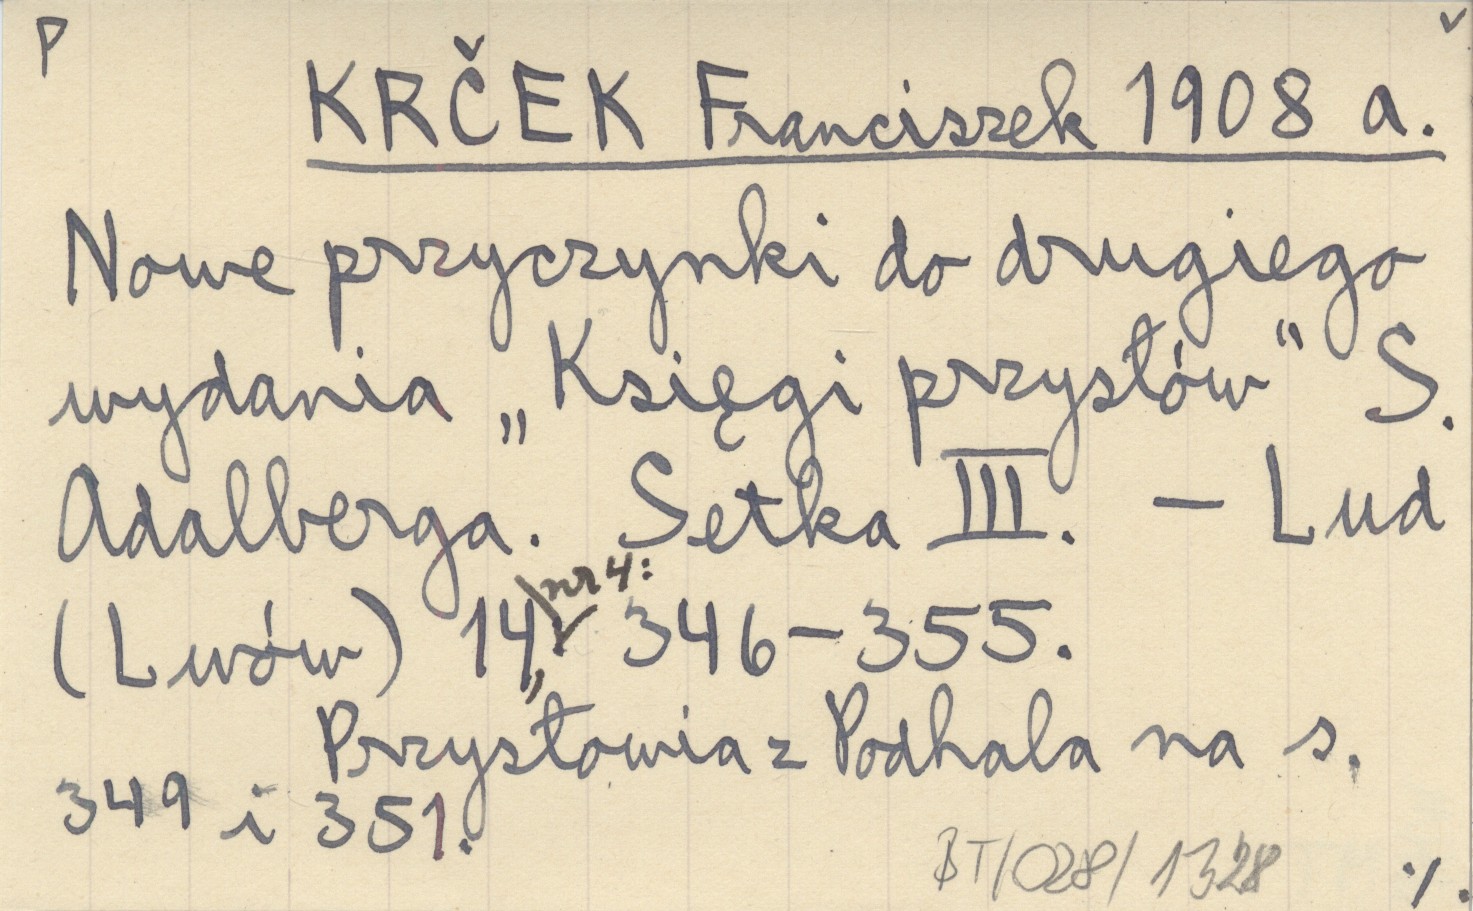 P
KRČEK Franciszek 1908 a.
Nowe przyczynki do drugiego
wydania „Księgi przysłów" S.
Adalberga. Setka III. – Lud
(Lwów) 14, nr 4: 346–355.
Przysłowia z Podhala na s.
349 i 351.
BT/028/1328